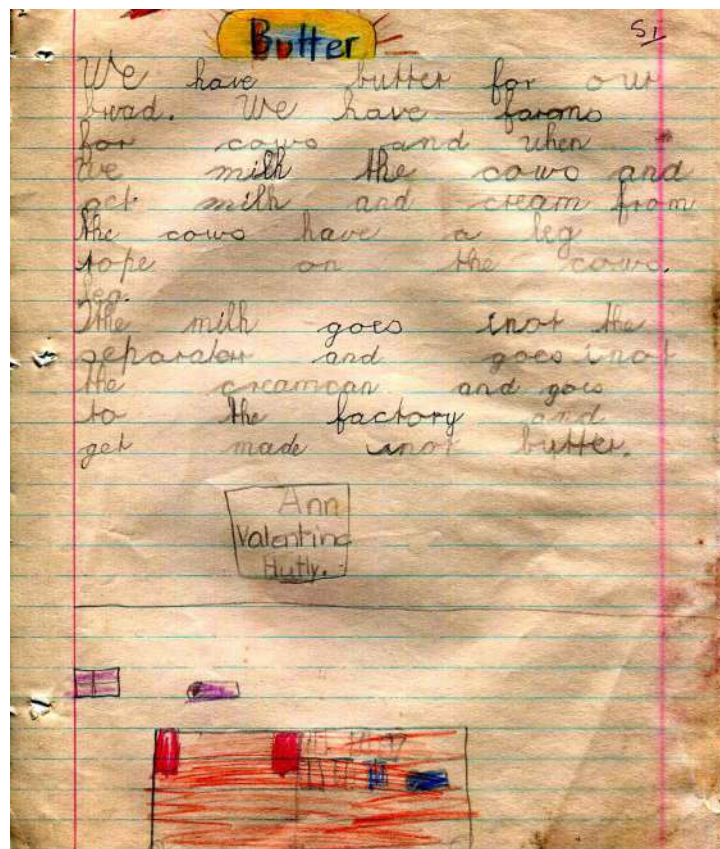 Butter
S1
We have butter for our
bread. We have farms
for cows and when
we milk the cows and
get milk and cream from
the cows have a leg
rope on the cows.
leg.
The milk goes inot the
separator and goes inot
the creamcan and goes
to the factory and
get made inot butter.
Ann
Valentine
Hutly.